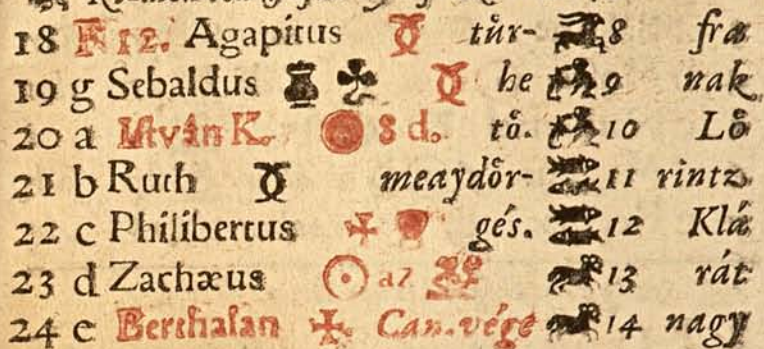 18 F 12. Agapitus tůr- 8 fra
19 g Sebaldus he 9 nak
20 a Istvàn K. 8 d. tő. 10 Lő
21 b Ruth meaydőr- 11 rintz
22 c Philibertus gés. 12 Klá
23 d Zachæus az 13 rát
24 e Berthalan Can. vége 14 nagy